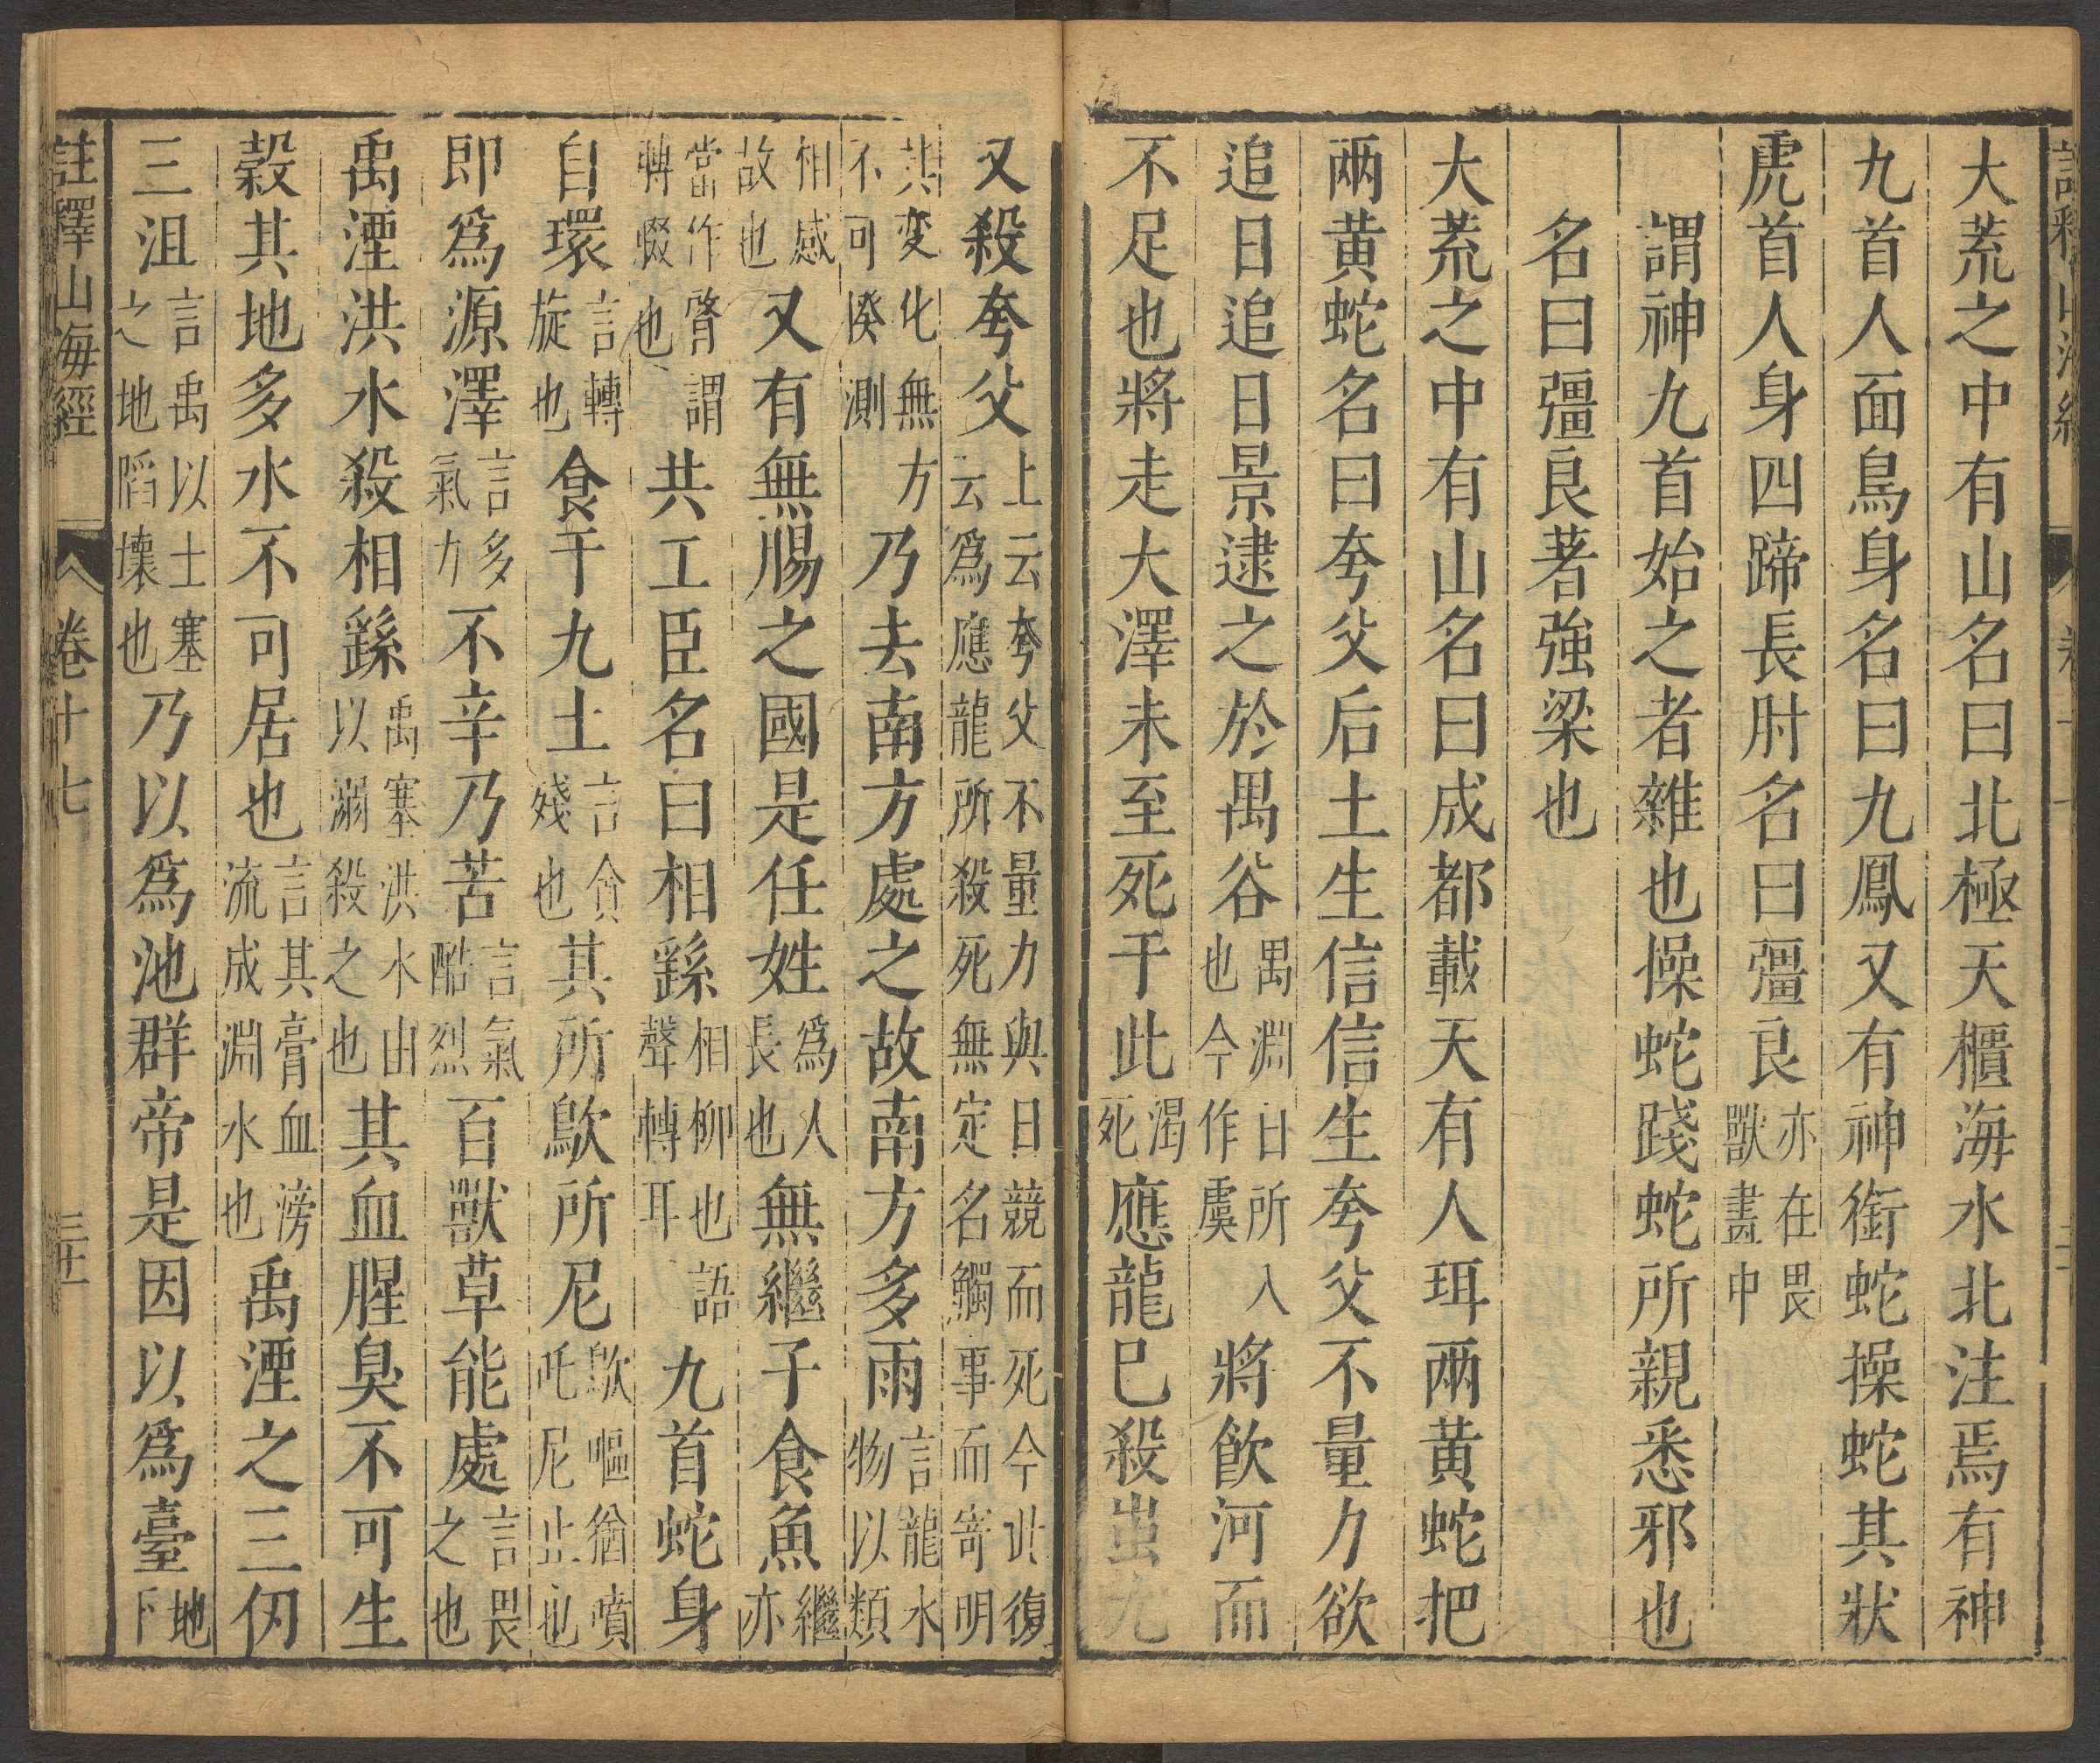 大荒之中有山名曰北極天櫃海水北注焉有神
九首人面鳥身名曰九鳳又有神銜蛇操蛇其狀
虎首人身四蹄長肘名曰彊良亦在畏獸畫中
謂神九首始之者雜也操蛇踐蛇所親悉邪也
名曰彊良著強梁也
大荒之中有山名曰成都載天有人珥兩黃蛇把
兩黃蛇名曰夸父后土生信信生夸父不量力欲
追日追日景逮之於禺谷禺淵日所入也今作虞將飲河而
不足也將走大澤未至死于此渴死應龍巳殺蚩尤
又殺夸父上云夸父不量力與日競而死今此復云爲應龍所殺死無定名觸事而寄明
其变化無方不可揆測乃去南方處之故南方多雨言龍水物以類
相感故也又有無腸之國是任姓爲人長也無繼子食魚繼亦
當作臋謂轉腏也共工臣名曰相繇相柳也語聲轉耳九首蛇身
自環言轉旋也食于九土言貪殘也其所歍所尼歍嘔猶噴吒尼止也
即爲源澤言多氣力不辛乃苦言氣酷烈百獸草能處言畏之也
禹湮洪水殺相繇禹塞洪水由以溺殺之也其血腥臭不可生
穀其地多水不可居也言其膏血滂流成淵水也禹湮之三仞
三沮言禹以土塞之地陷壞也乃以爲池群帝是因以爲臺地下
註釋山海經 卷十七